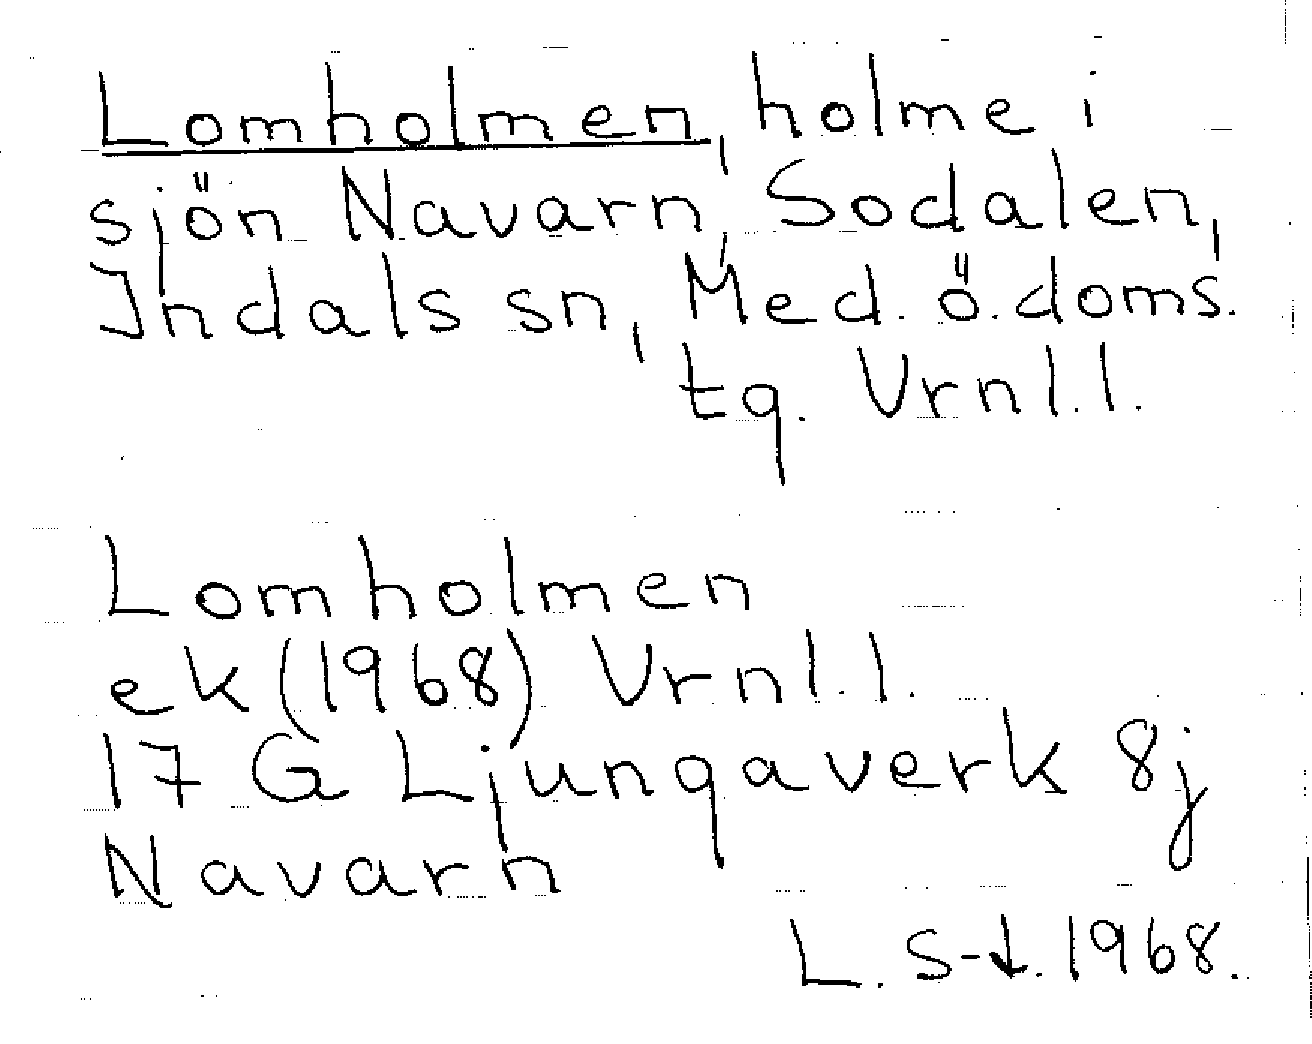 Lomholmen, holme i
sjön Navarn, Sodalen,
Indals sn, Med. ö. doms.
tg. Vrnl. l.
Lomholmen
ek (1968) Vrnl. l.
17 G Ljungaverk 8j
Navarn
L. S-d. 1968.